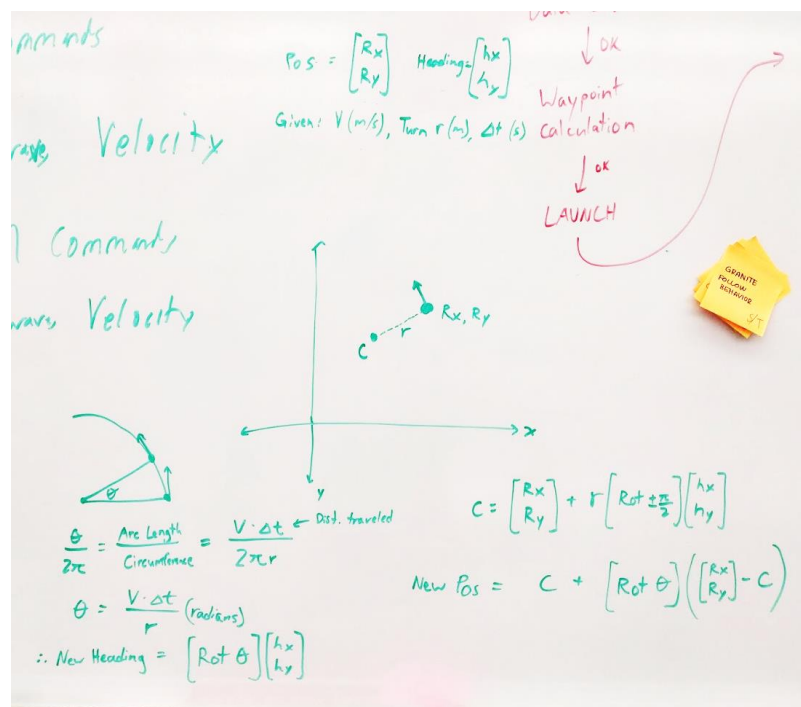 Commands
Velocity
Commands
Velocity
Pos = [Rx Ry] Heading = [hx hy]
Given: V (m/s), Turn r (m), Δt (s)
↓ OK
Waypoint
Calculation
↓ OK
LAUNCH
GRANITE
FOLLOW
BEHAVIOR
S/T
Rx, Ry
r
C
x
y
θ
θ/2π = Arc Length/Circumference = V·Δt/2πr ← Dist. traveled
θ = V·Δt/r (radians)
∴ New Heading = [Rot θ][hx hy]
C = [Rx Ry] + r[Rot ±π/2][hx hy]
New Pos = C + [Rot θ]([Rx Ry] - C)